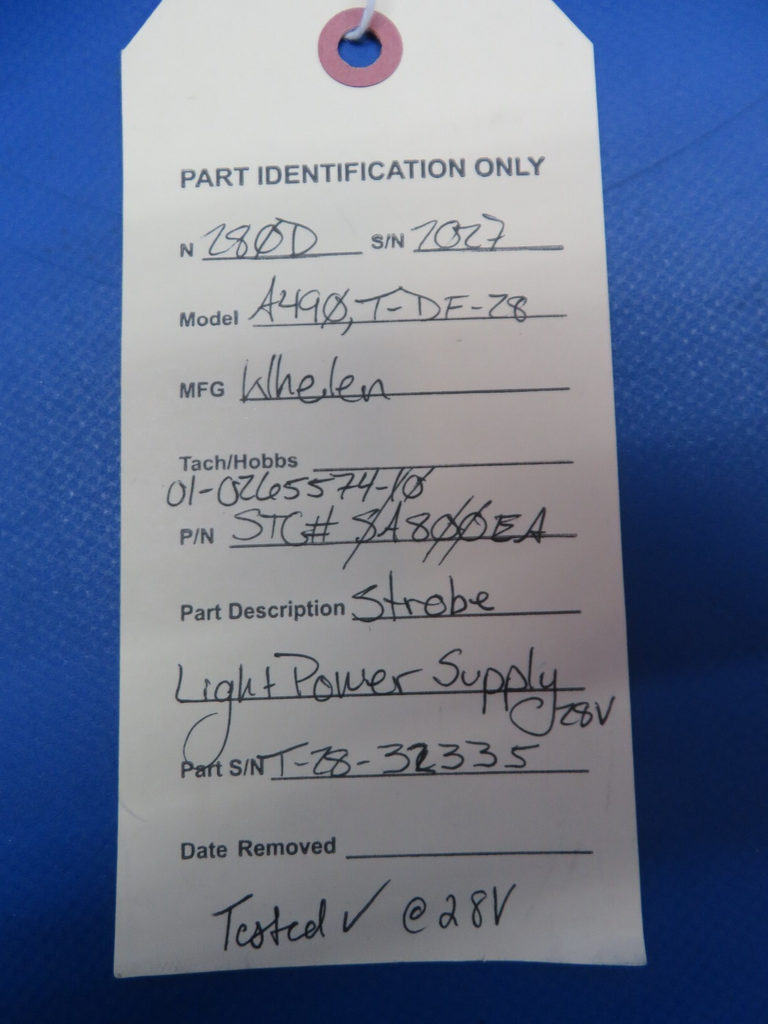 PART IDENTIFICATION ONLY
N 280D S/N 7027
Model A490, T-DF-28
MFG Whelen
Tach/Hobbs
01-0265574-10
P/N STC# SA800EA
Part Description Strobe
Light Power Supply
28V
Part S/N T-28-32335
Date Removed
Tested ✓ @ 28V